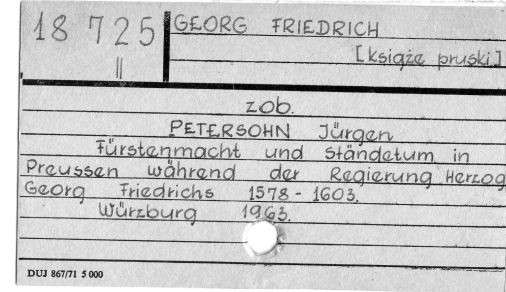 18 725
II
GEORG FRIEDRICH
[książę pruski]
zob.
PETERSOHN Jürgen
Fürstenmacht und Ständetum in
Preussen während der Regierung Herzog
Georg Friedrichs 1578 - 1603.
Würzburg 1963.
DUJ 867/71 5 000